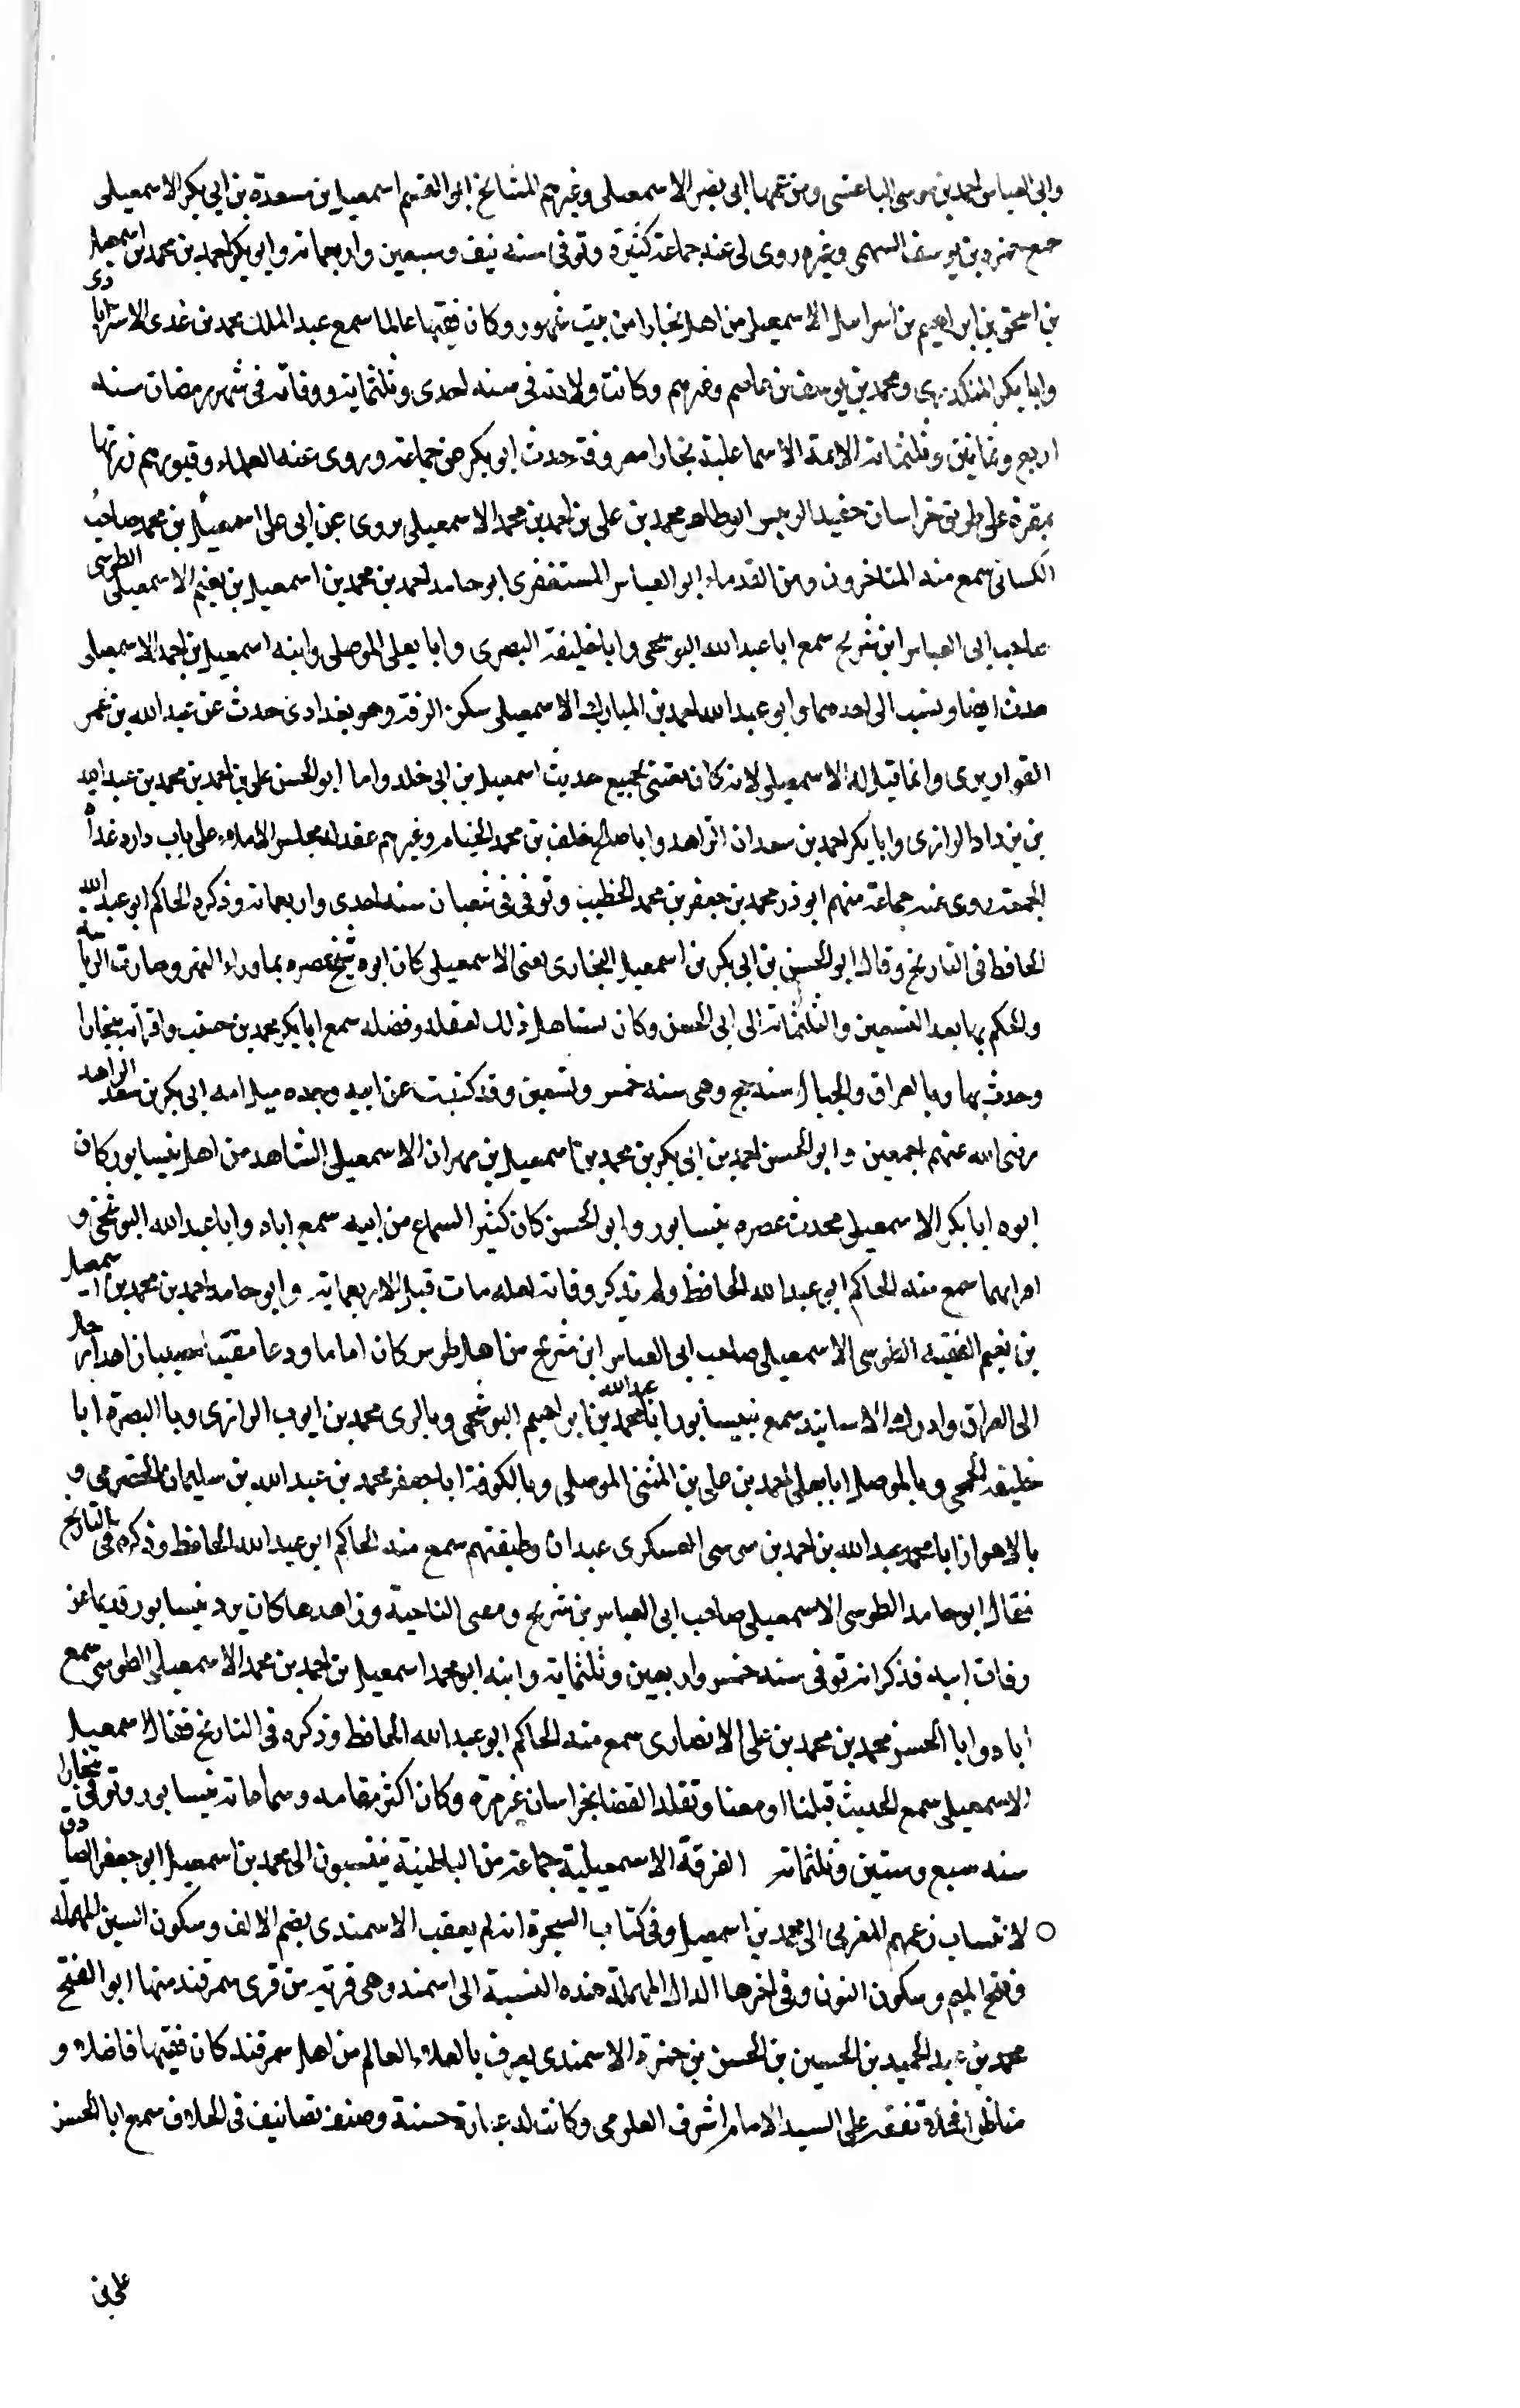 وابى العباس احمد بن موسى الباغشى ومن عمها ابى نصر الاسمعيلى وغيرهم المشائخ ابو القسم اسمعيل بن مسعدة بن ابى بكر الاسمعيلى
سمع حمزه بن يوسف السهمى وغيره روى لى عنه جماعة كثيرة وتوفى سنه نيف وسبعين واربعمائه وابو بكر احمد بن محمد بن اسمعيل
بن اسحق بن ابراهيم بن اسرائيل الاسمعيلى من اهل بخارا من بيت مشهور وكان فقيها عالما سمع عبد الملك محمد بن عدى الاستراباذى
وابا بكر المنكدرى ومحمد بن يوسف بن عاصم وغيرهم وكانت ولادته فى سنه احدى وثلثمايه ووفاته فى شهر رمضان سنه
اربع وثمانين وثلثمائه الايمة الاسماعلية بخارا معروفة حدث ابو بكر عن جماعة وروى عنه العلماء وقبورهم زرتها
بمقرة على طريق خراسان حفيد الرئيس ابو طاهر محمد بن على بن احمد بن محمد الاسمعيلى يروى عن ابى على اسمعيل بن محمد صاحب
الكسانى سمع منه المتاخرون ومن القدماء ابو العباس المستغفرى ابو حامد احمد بن محمد بن اسمعيل بن نعيم الاسمعيلى الطوسى
صاحب ابى العباس ابن شريح سمع ابا عبد الله البوشحى وابا خليفة البصرى وابا يعلى الموصلى وابنه اسمعيل بن احمد الاسمعيلى
حدث ايضا ونسب الى احدهما وابو عبد الله احمد بن المبارك الاسمعيلى سكن الرقة وهو بغدادى حدث عن عبد الله بن عمر
القواريرى وانما قيل له الاسمعيلى لانه كان يعتنى بجميع حديث اسمعيل بن ابى خلد واما ابو الحسن على بن احمد بن محمد بن عبد الله
بن يزداد الرازى وابا بكر احمد بن سعدان الزاهد وابا صالح خلف بن محمد الخيام وغيرهم عقد له مجلس الاملاء على باب داره غداة
الجمعة روى عنه جماعة منهم ابو ذر محمد بن جعفر بن محمد الخطيب وتوفى فى شعبان سنه احدى واربعمائه وذكره الحاكم ابو عبد الله
الحافظ فى التاريخ وقال ابو الحسن بن ابى بكر بن اسمعيل البخارى يعنى الاسمعيلى كان ابوه شيخ عصره بماوراء النهر وصارت الرياسة
والحكم بها بعد التسعين والثلثمائه الى ابى الحسن وكان يستاهل ذلك لعقله وفضله سمع ابا بكر محمد بن خنب واقرانه ببخارا
وحدث بها وبالعراق والجبال سنه حج وهى سنه خمس وتسعين وقد كتبت عن ابيه وجده ميل امه ابى بكر بن سعد الزاهد
رضى الله عنهم اجمعين وابو الحسن احمد بن ابى بكر بن محمد بن اسمعيل بن مهران الاسمعيلى الشاهد من اهل نيسابور كان
ابوه ابا بكر الاسمعيلى محدث عصره بنيسابور وابو الحسن كان كثير السماع من ابيه سمع اباه وابا عبد الله البوشنجى و
اقرانهما سمع منه الحاكم ابو عبد الله الحافظ ولم يذكر وفاته لعله مات قبل الاربعمايه وابو حامد احمد بن محمد بن اسمعيل
بن نعيم الفقيه الطوسى الاسمعيلى صاحب ابى العباس ابن شريح من اهل طوس كان اماما ورعا
الى العراق وادرك الاسانيد سمع بنيسابور ابا عبد الله محمد بن ابراهيم البوشحى وبالرى محمد بن ايوب الرازى وبالبصرة ابا
خليفه الجمحى وبالموصل ابا يعلى احمد بن على بن المثنى الموصلى وبالكوفة ابا جعفر محمد بن عبد الله بن سليمان الحضرمى و
بالاهواز ابا محمد عبد الله بن احمد بن موسى العسكرى عبدان وطبقتهم سمع منه الحاكم ابو عبد الله الحافظ وذكره فى التاريخ
فقال ابو حامد الطوسى الاسمعيلى صاحب ابى العباس بن شريح ومفتى الناحية وزاهدها كان يرد نيسابور قديما عن
وفات ابيه فذكر انه توفى سنه خمس واربعين وثلثمايه وابنه ابو محمد اسمعيل بن احمد بن محمد الاسمعيلى الطوسى سمع
اباه وابا الحسن محمد بن محمد بن على الانصارى سمع منه الحاكم ابو عبد الله الحافظ وذكره فى التاريخ فقال اسمعيل
الاسمعيلى سمع الحديث قبلنا او معنا وتقلد القضا بخراسان غير مرة وكان اكثر مقامه وسماعاته نيسابور وتوفى ببخارا
سنه سبع وستين وثلثمائه الفرقة الاسمعيلية جماعة من الباطنية ينتسبون الى محمد بن اسمعيل ابو جعفر الصادق
لانتساب زعيمهم المغربى الى محمد بن اسمعيل وفى كتاب الشجرة انه لم يعقب الاسمندى بضم الالف وسكون السين المهملة
وفتح الميم وسكون النون وفى اخرها الدال المهملة هذه النسبة الى اسمند وهى قرية من قرى سمرقند منها ابو الفتح
محمد بن عبد الحميد بن الحسين بن الحسن بن حمزة الاسمندى يعرف بالعلاء العالم من اهل سمرقند كان فقيها فاضلا و
مناظرا فحلا تفقه على السيد الامام اشرف العلوى وكانت له عبارة حسنة وصنف تصانيف فى الخلاف سمع ابا الحسن
على بن